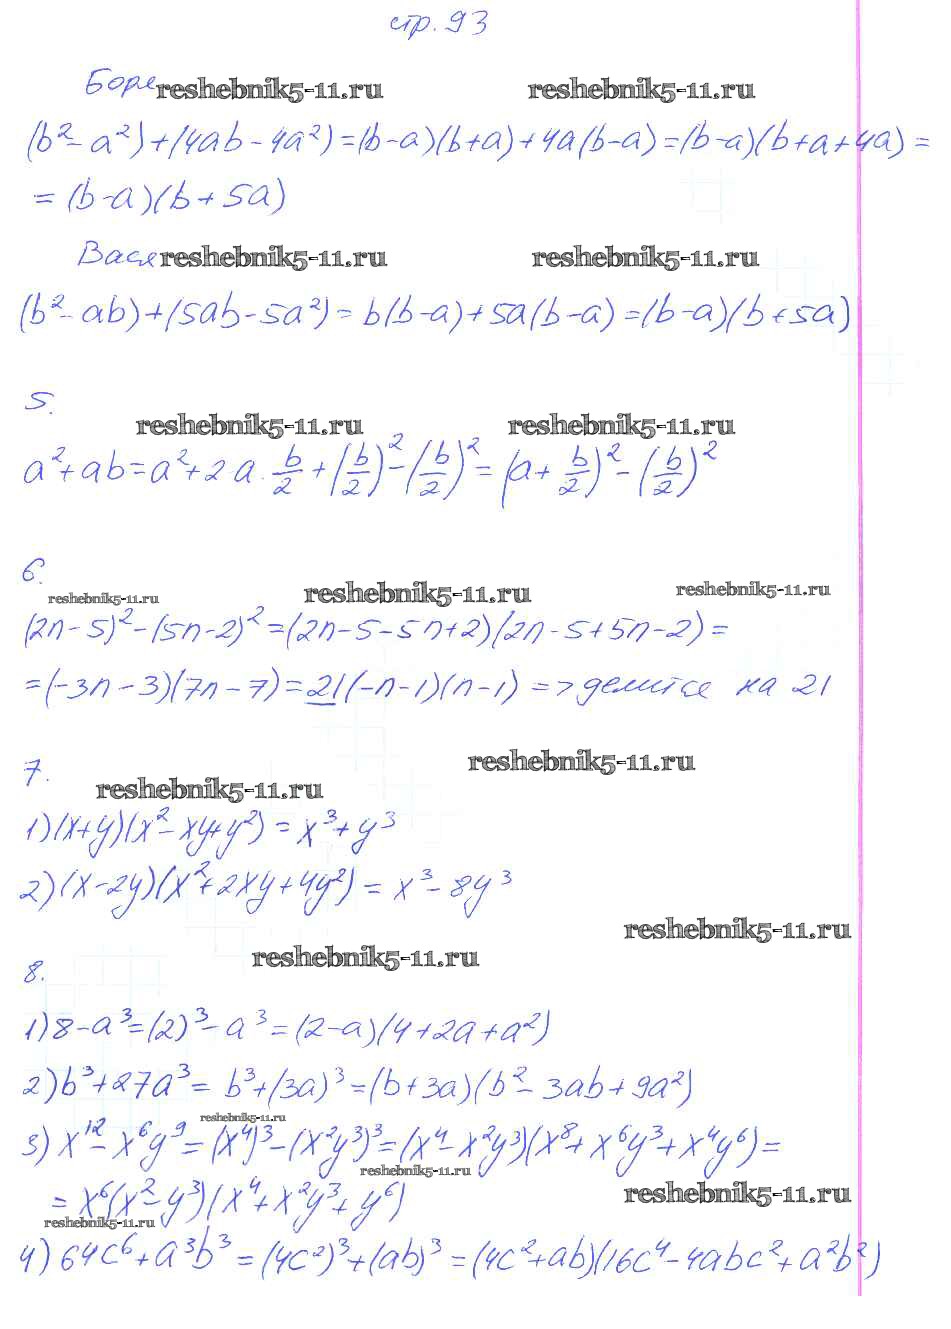 стр. 93
Боря reshebnik5-11.ru reshebnik5-11.ru
(b²-a²)+(4ab-4a²)=(b-a)(b+a)+4a(b-a)=(b-a)(b+a+4a)=
=(b-a)(b+5a)
Вася reshebnik5-11.ru reshebnik5-11.ru
(b²-ab)+(5ab-5a²)=b(b-a)+5a(b-a)=(b-a)(b+5a)
5.
reshebnik5-11.ru reshebnik5-11.ru
a²+ab=a²+2a·b/2+(b/2)²-(b/2)²=(a+b/2)²-(b/2)²
6.
reshebnik5-11.ru reshebnik5-11.ru reshebnik5-11.ru
(2n-5)²-(5n-2)²=(2n-5-5n+2)(2n-5+5n-2)=
=(-3n-3)(7n-7)=21(-n-1)(n-1) => делится на 21
7.
reshebnik5-11.ru
reshebnik5-11.ru
1)(x+y)(x²-xy+y²)=x³+y³
2)(x-2y)(x²+2xy+4y²)=x³-8y³
reshebnik5-11.ru
reshebnik5-11.ru
8.
1)8-a³=(2)³-a³=(2-a)(4+2a+a²)
2)b³+27a³=b³+(3a)³=(b+3a)(b²-3ab+9a²)
reshebnik5-11.ru
3)x¹²-x⁶y⁹=(x⁴)³-(x²y³)³=(x⁴-x²y³)(x⁸+x⁶y³+x⁴y⁶)=
reshebnik5-11.ru
=x⁶(x²-y³)(x⁴+x²y³+y⁶)
reshebnik5-11.ru
reshebnik5-11.ru
4)64c⁶+a³b³=(4c²)³+(ab)³=(4c²+ab)(16c⁴-4abc²+a²b²)